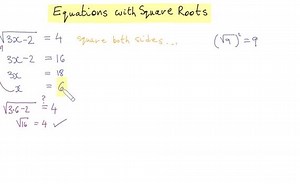 Equations with Square Roots
√3x-2 = 4 square both sides... (√9)² = 9
3x-2 = 16
3x = 18
x = 6
√3·6-2 ?= 4
√16 = 4 ✓